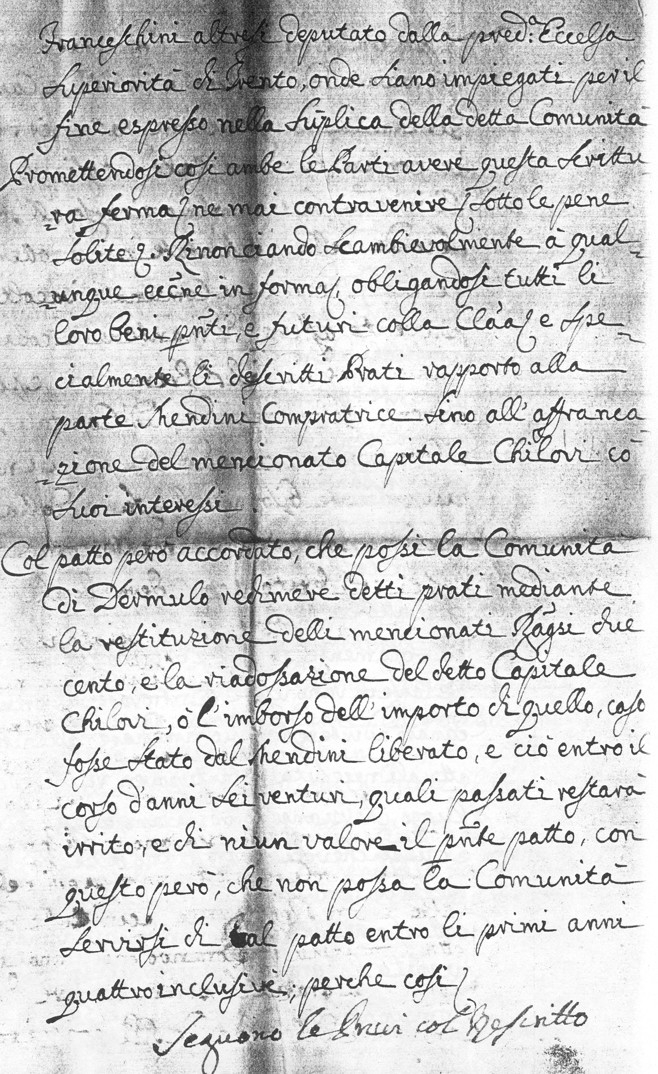 Franceschini altresi deputato dalla pred.ª Eccelsa
Superiorità di Trento, onde siano impiegati per il
fine espresso nella Suplica della detta Comunità
Promettendosi così ambe le Parti avere questa Scrittu
=ra ferma ne mai contravenire sotto le pene
solite. Rinonciando scambievolmente à qual=
=unque eccne in forma, obligandosi tutti li
loro beni pnti, e futuri colla e spe=
cialmente li descritti Prati rapporto alla
parte Shendini Compratrice sino all'affranca=
=zione del mencionato Capitale Chilovi cō
suoi interessi.
Col patto però accordato, che possi la Comunità
di Dermulo redimere detti prati mediante
la restituzione delli mencionati Ragsi due
cento, e la viadossazione del detto Capitale
Chilovi, ò l'imborso dell'importo di quello, caso
fosse stato dal Shendini liberato, e ciò entro il
corso d'anni sei venturi, quali passati restarà
irrito, e di niun valore il pnte patto, con
questo però, che non possa la Comunità
servirsi di tal patto entro li primi anni
quattro inclusive, perche così
Seguono le col Rescritto